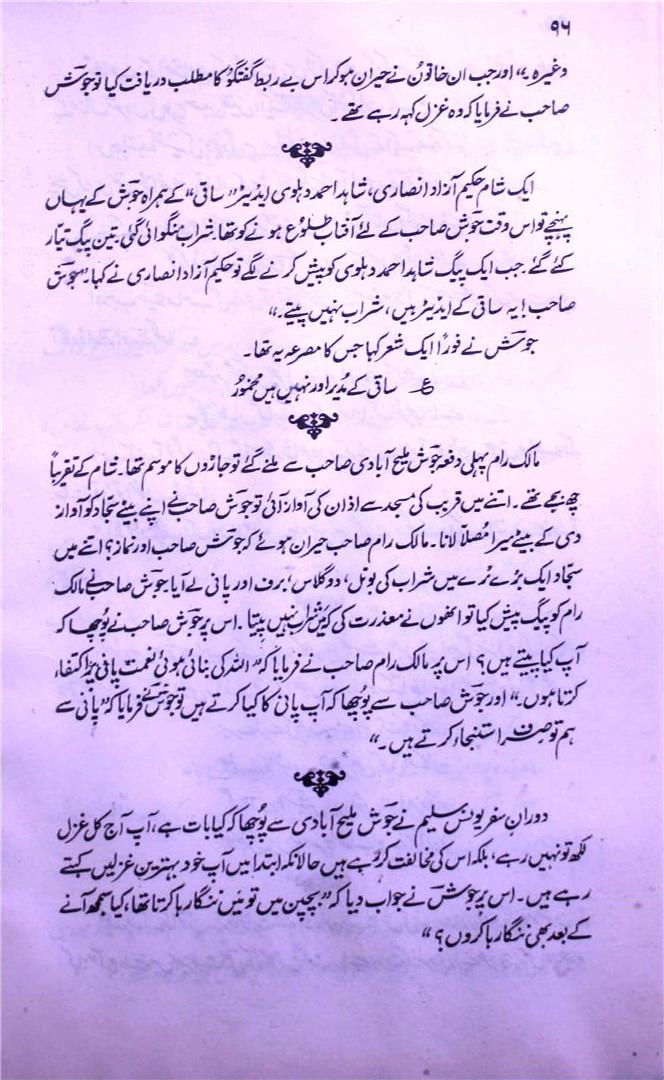 ۹۶
وغیرہ ،، اور جب ان خاتون نے حیران ہوکر اس بے ربط گفتگو کا مطلب دریافت کیا تو جوش
صاحب نے فرمایا کہ وہ غزل کہہ رہے تھے ۔
ایک شام حکیم آزاد انصاری، شاہد احمد دہلوی ایڈیٹر ”ساقی“ کے ہمراہ جوش کے یہاں
پہنچے تو اس وقت جوش صاحب کے لئے آفتاب طلوع ہونے کو تھا۔ شراب منگوائی گئی۔ تین پیگ تیار
کئے گئے۔ جب ایک پیگ شاہد احمد دہلوی کو پیش کرنے لگے تو حکیم آزاد انصاری نے کہا۔ ”جوش
صاحب! یہ ساقی کے ایڈیٹر ہیں، شراب نہیں پیتے۔“
جوش نے فوراً ایک شعر کہا جس کا مصرعہ یہ تھا۔
ع ساقی کے مُدیر اور نہیں ہیں مخمور
مالک رام پہلی دفعہ جوش ملیح آبادی صاحب سے ملنے گئے تو جاڑوں کا موسم تھا۔ شام کے تقریباً
چھ بجے تھے۔ اتنے میں قریب کی مسجد سے اذان کی آواز آئی تو جوش صاحب نے اپنے بیٹے سجاد کو آواز
دی کے بیٹے میرا مُصلّا لانا۔ مالک رام صاحب حیران ہوئے کہ جوش صاحب اور نماز؟ اتنے میں
سجاد ایک بڑے ٹرے میں شراب کی بوتل، دو گلاس، برف اور پانی لے آیا۔ جوش صاحب نے مالک
رام کو پیگ پیش کیا تو انھوں نے معذرت کی کہ میں شراب نہیں پیتا۔ اس پر جوش صاحب نے پُوچھا کہ
آپ کیا پیتے ہیں؟ اس پر مالک رام صاحب نے فرمایا کہ ”اللہ کی بنائی ہوئی نعمت پانی پر اکتفاء
کرتا ہوں۔“ اور جوش صاحب سے پُوچھا کہ آپ پانی کا کیا کرتے ہیں تو جوش نے فرمایا کہ ”پانی سے
ہم تو صرف استنجاء کرتے ہیں۔“
دورانِ سفر یونس سلیم نے جوش ملیح آبادی سے پُوچھا کہ کیا بات ہے، آپ آج کل غزل
لکھ تو نہیں رہے، بلکہ اس کی مخالفت کر رہے ہیں حالانکہ ابتدا میں آپ خود بہترین غزلیں کہتے
رہے ہیں۔ اس پر جوش نے جواب دیا کہ ”بچپن میں تو میں ننگا رہا کرتا تھا، کیا سمجھ آنے
کے بعد بھی ننگا رہا کروں؟“